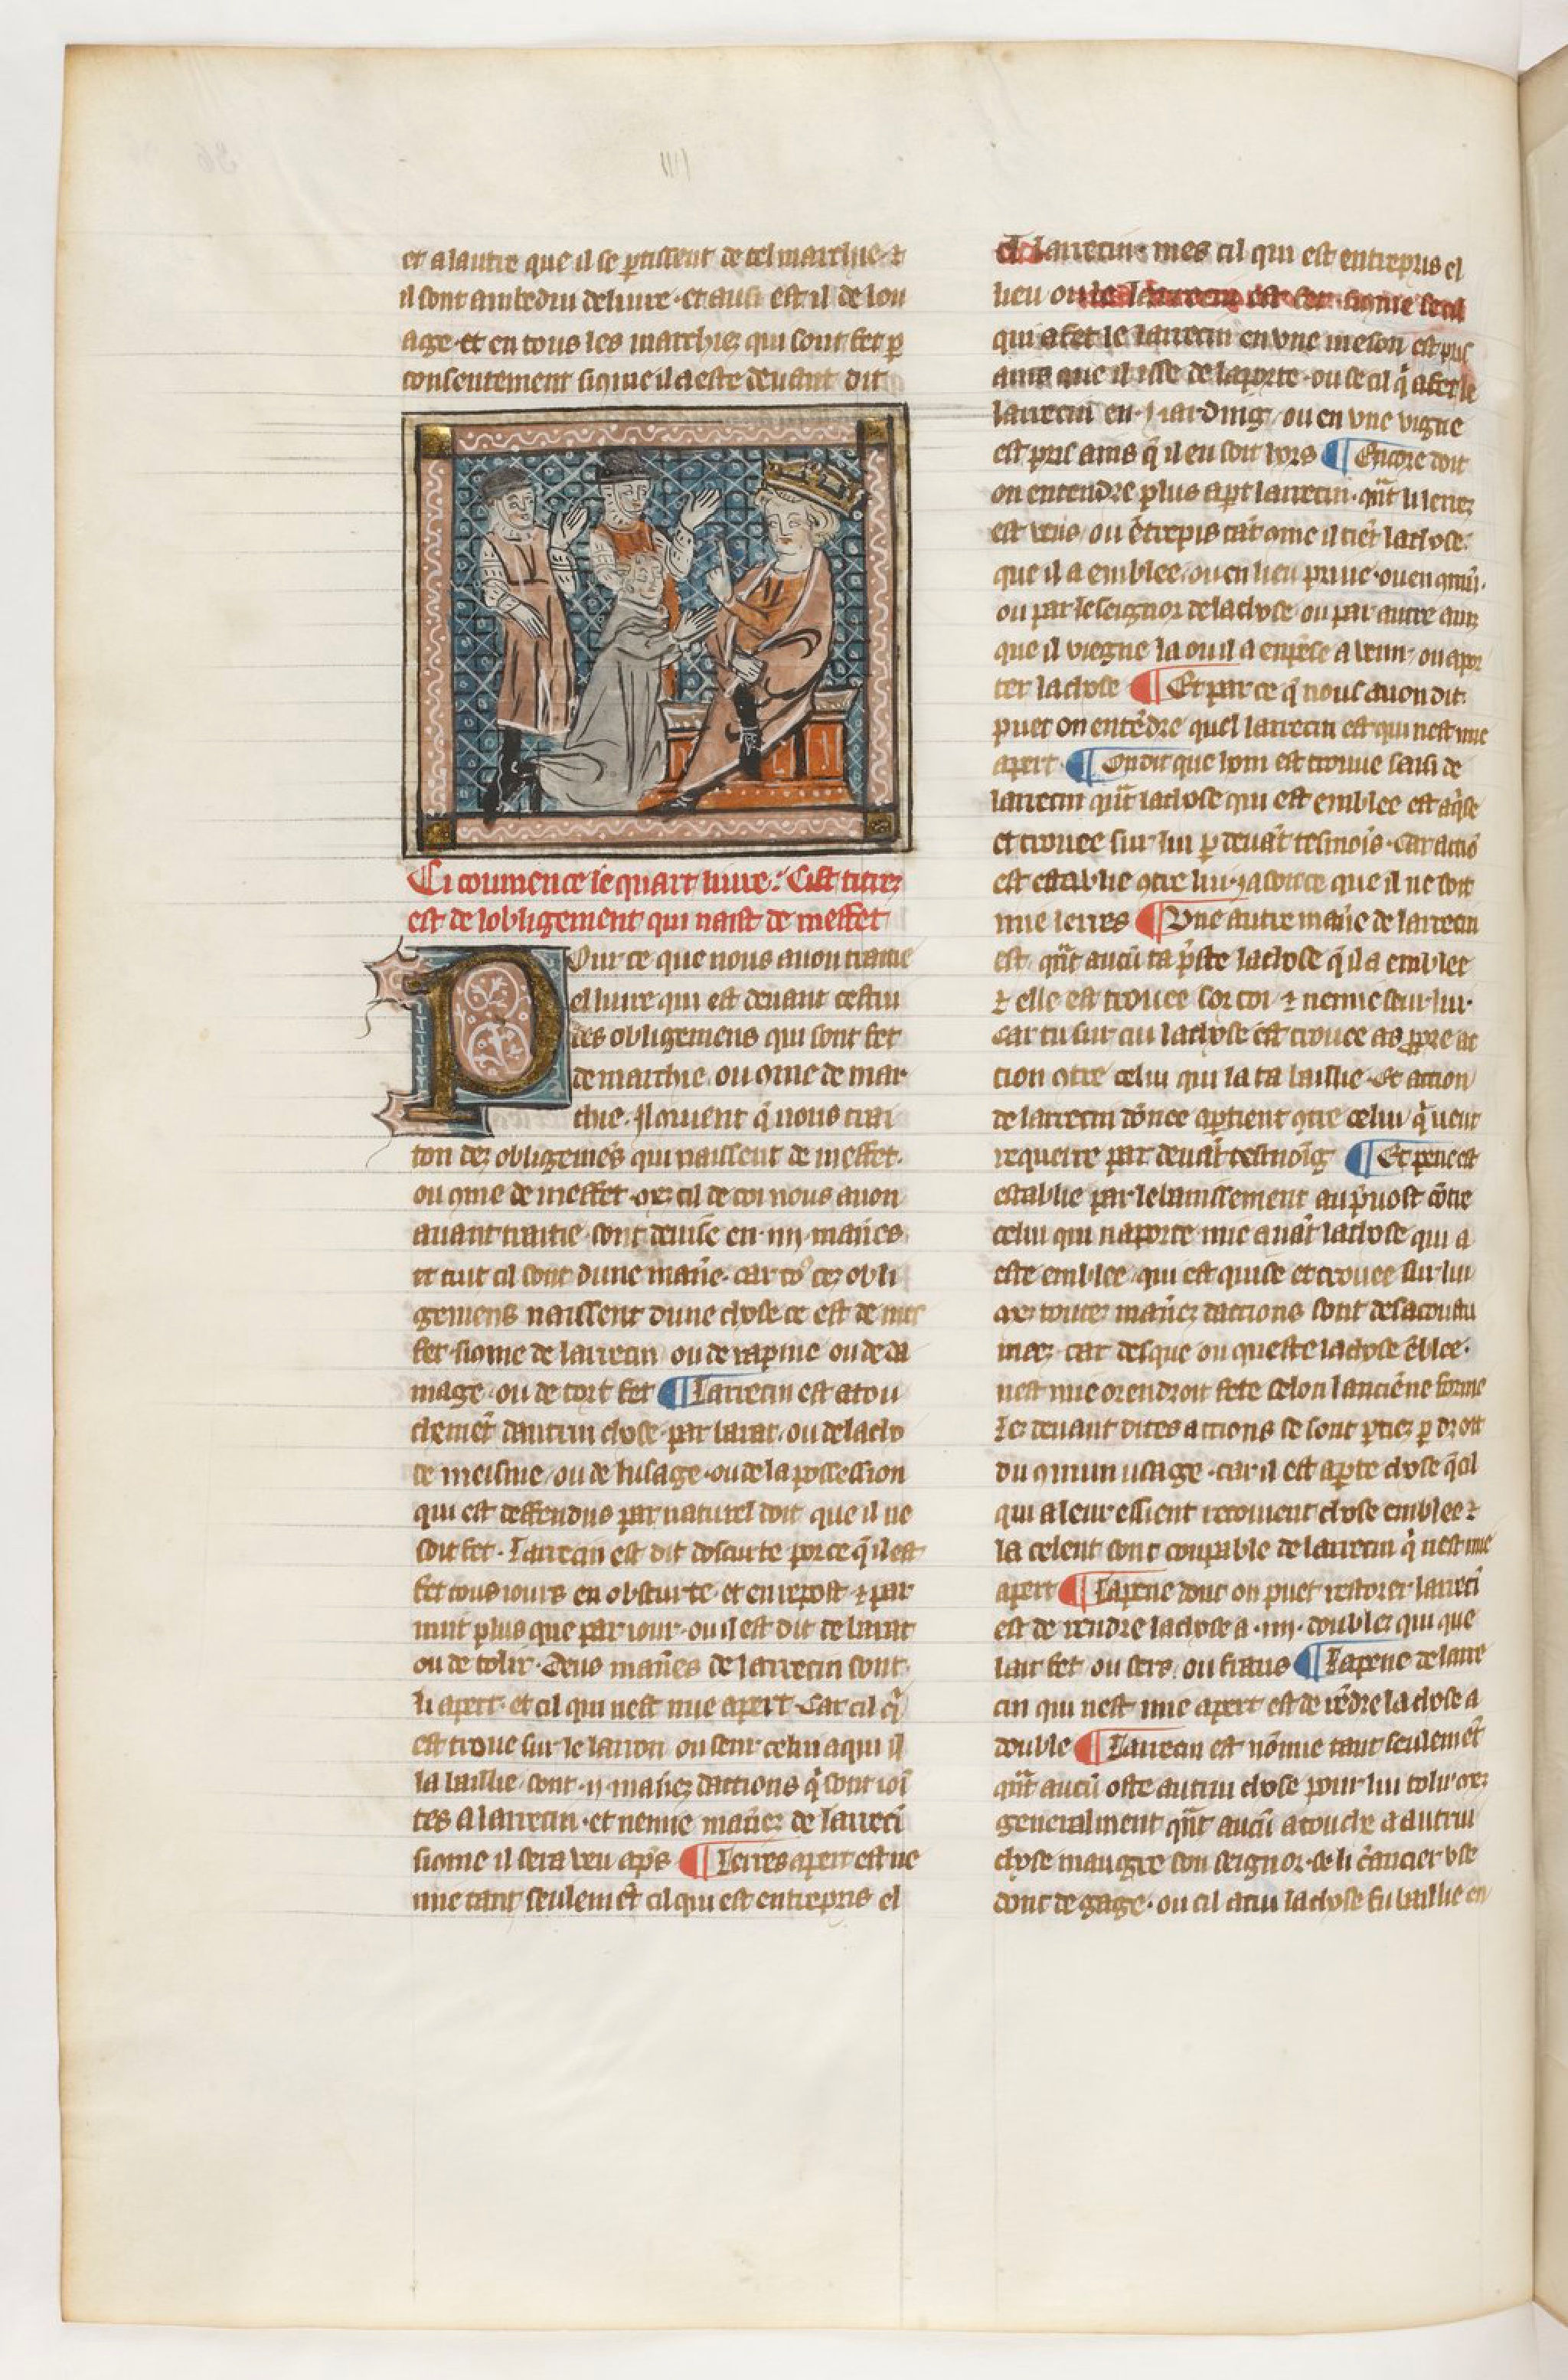 et a lautre que il se ꝑtissent de tel marchie ⁊
il sont ambedui deliure · et ausi est il de lou
age · et en tous les marchiez qui sont fet ꝑ
consentement si ꝯme il a este deuant dit
Ci coumence le quart liure · Cist titrez
est de lobligement qui naist de meffet
Pour ce que nous auon traitie
el liure qui est deuant cestui
des obligemens qui sont fet
de marchie, ou ꝯme de mar
chie · Il ꝯuient q̃ nous trai
ton dez obligemẽs qui naissent de meffet ·
ou ꝯme de meffet · orez cil de coi nous auon
auant traitie sont deuise en · iiij · manĩes
et tuit cil sont dune manĩe · car toꝰ cez obli
gemens naissent dune chose ce est de mes
fet · si ꝯme de larrecin ou de rapine ou de da
mage · ou de tort fet ¶ Larrecin est atou
chemẽt dautrui chose par barat · ou de la cho
se meisme · ou de lusage · ou de la possession
qui est deffendus par naturel droit que il ne
soit fet · Larrecin est dit doscurte por ce q̃ il est
fet tous iours en obscurte et en repost ⁊ par
nuit plus que par iour · ou il est dit de barat
ou de tolir · Deus manĩes de larrecin sont
li apert · et cil qui nest mie apert · Car cil q̃
est troue sur le larron ou seur celui a qui il
la baillie · sont · ij · manĩez dactions q̃ sont ioĩ
tes a larrecin · et nemie manĩez de larrecĩ
si ꝯme il sera veu apꝛ̃s ¶ Lerres apert est ne
mie tant seulemẽt cil qui est entrepris el
el larrecin · mes cil qui est entrepris el
lieu ou le larrecin est fet · si ꝯme se cil
qui a fet le larrecin en vne meson est pris
ains que il isse de la porte · ou se cil q̃ a fet le
larrecin en · j · iarding, ou en vne vigne
est pris ains q̃ il en soit hors ¶ Encore doit
on entendre plus apert larrecin · quãt li lerrez
est veus, ou ẽtrepris tant ꝯme il tiẽt la chose
que il a emblee, ou en lieu priue · ou en ꝯmũ ·
ou par le seignor de la chose, ou par autre ainz
que il viegne la ou il a enpẽse a venir, ou apor
ter la chose ¶ Et par ce q̃ nous auon dit
puet on entẽdre quel larrecin est qui nest mie
apert ¶ On dit que hom est trouue saisi de
larrecin quãt la chose qui est emblee est aq̃se
et trouee sur lui ꝑ deuãt tesmoĩs · car actiõ
est establie ꝯtre lui, ia soit ce que il ne soit
mie lerres ¶ Une autre manĩe de larrecin
est, quãt aucũ ta p̃ste la chose q̃ il a emblee
⁊ elle est trouee sor toi ⁊ nemie seur lui ·
Car tu sur cui la chose est trouee as ꝓpre ac
tion ꝯtre celui qui la ta laissie · Et action
de larrecin dõnee apꝑtient ꝯtre celui q̃ veut
requerre par deuãt tesmoing ¶ Et peine est
establie par le banissement au p̃uost cõtre
celui qui naporte mie auãt la chose qui a
este emblee · qui est quise et trouee sur lui
orez toutez manĩez dactions sont desacoustu
meez · car desque on queste la chose ẽblee ·
nest mie orendroit fete selon lanciẽne forme
Lez deuant dites actions se sont ꝑtiez ꝑ droit
du ꝯmun usage · car il est aperte chose q̃ cil
qui a leur essient recoiuent chose emblee ⁊
la celent sont coupable de larrecin q̃ nest mie
apert ¶ La peine dont on puet restorer larrecĩ
est de rendre la chose a · iiij · doublez qui que
lait fet · ou sers, ou frans ¶ La peine de larre
cin qui nest mie apert est de rẽdre la chose a
double ¶ Larrecin est nõmie tant seulemẽt
quãt aucũ oste autrui chose pour lui tolir · orez
generalment quãt aucũ atouche a autrui
chose maugre son seignor · se li crãcier vse
dont de gage · ou cil a cui la chose fu baillie en